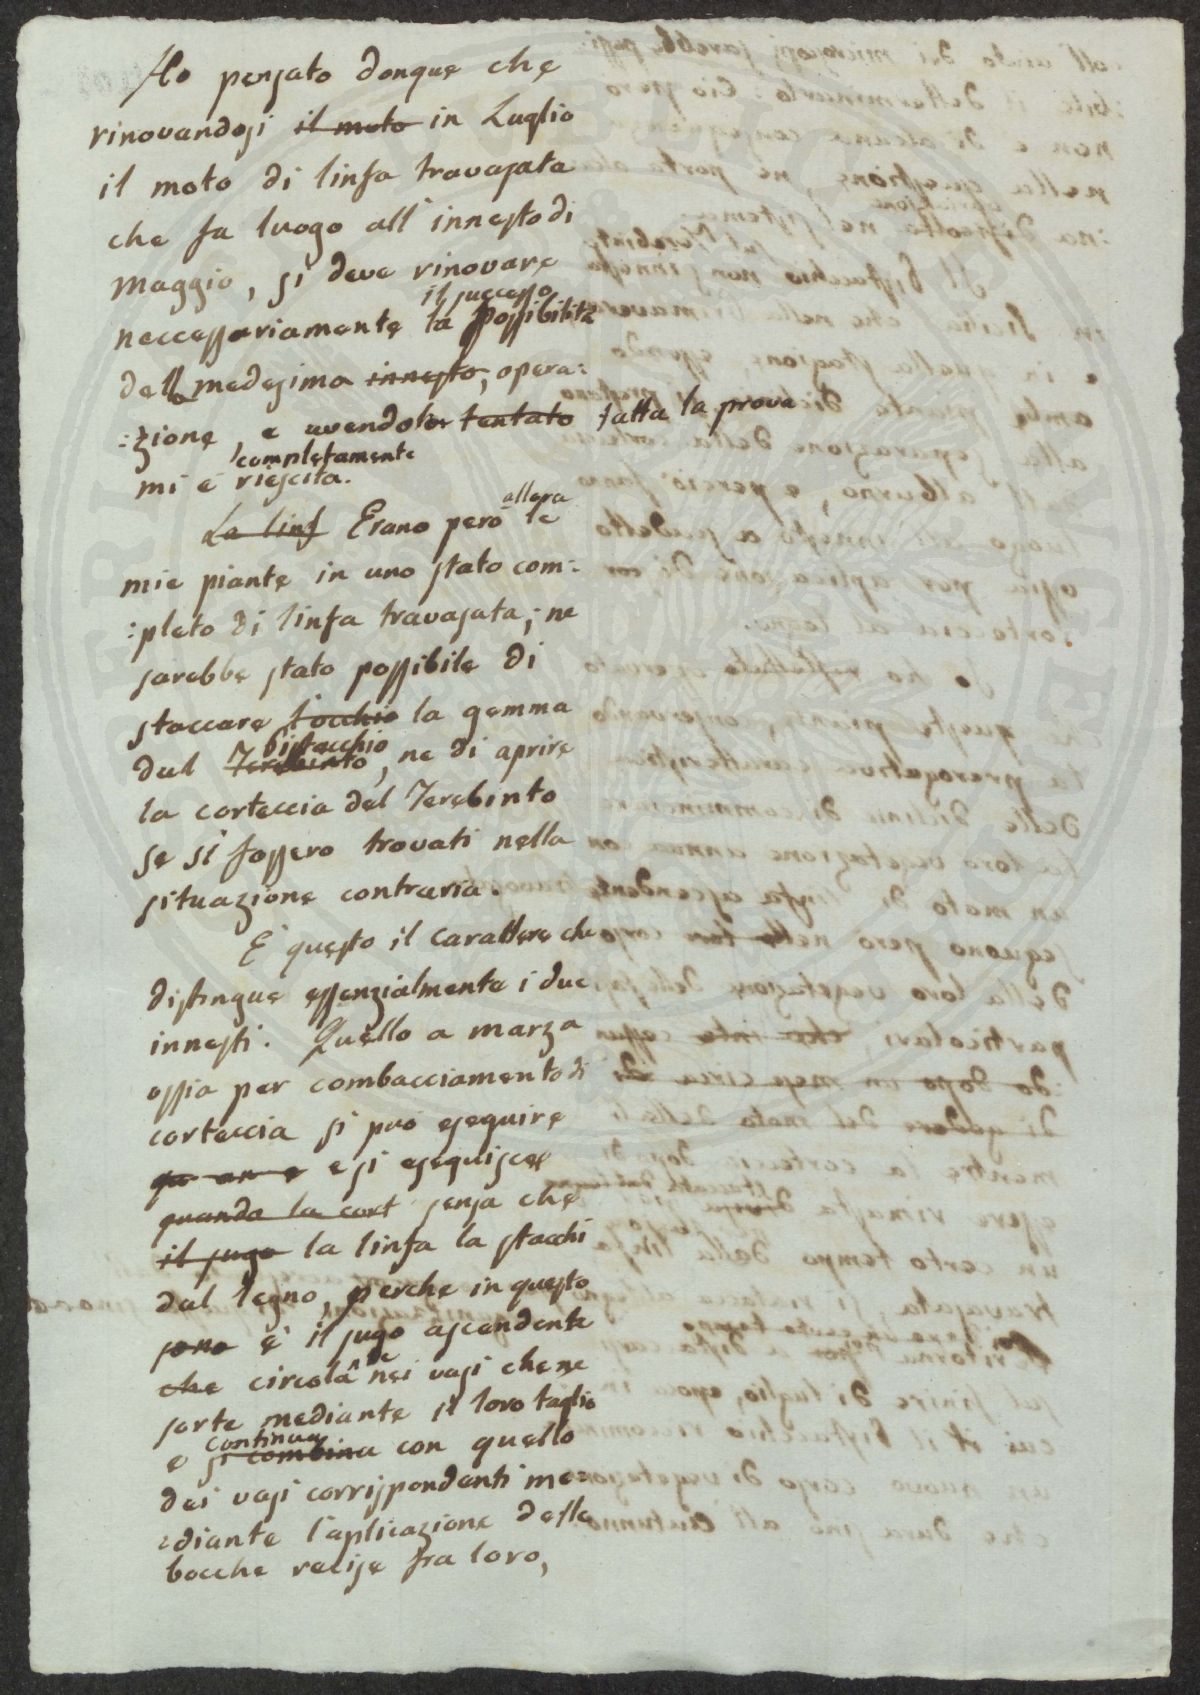 Ho pensato donque che
rinovandosi il moto in Luglio
il moto di linfa travasata
che fa luogo all' innesto di
Maggio, si deve rinovare
il successo
neccessariamente la possibilità
della medesima innesto, opera:
:zione, e avendolo tentato fatta la prova
completamente
mi è riescita.
allora
La linf Erano però le
mie piante in uno stato com:
:pleto di linfa travasata; ne
sarebbe stato possibile di
staccare l'occhio la gemma
bistacchio
dal Terebinto, ne di aprire
la corteccia del Terebinto
se si fossero trovati nella
situazione contraria.
E' questo il carattere che
distingue essenzialmente i due
innesti. Quello a marza
ossia per combacciamento di
corteccia si può eseguire
e si eseguisce
quando la cort senza che
il sugo la linfa la stacchi
dal legno, perche in questo
sono è il sugo ascendente
che circola nei vasi che ne
sorte mediante il loro taglio
continua
e si combina con quello
dei vasi corrispondenti me:
:diante l'aplicazione delle
bocche recise fra loro,